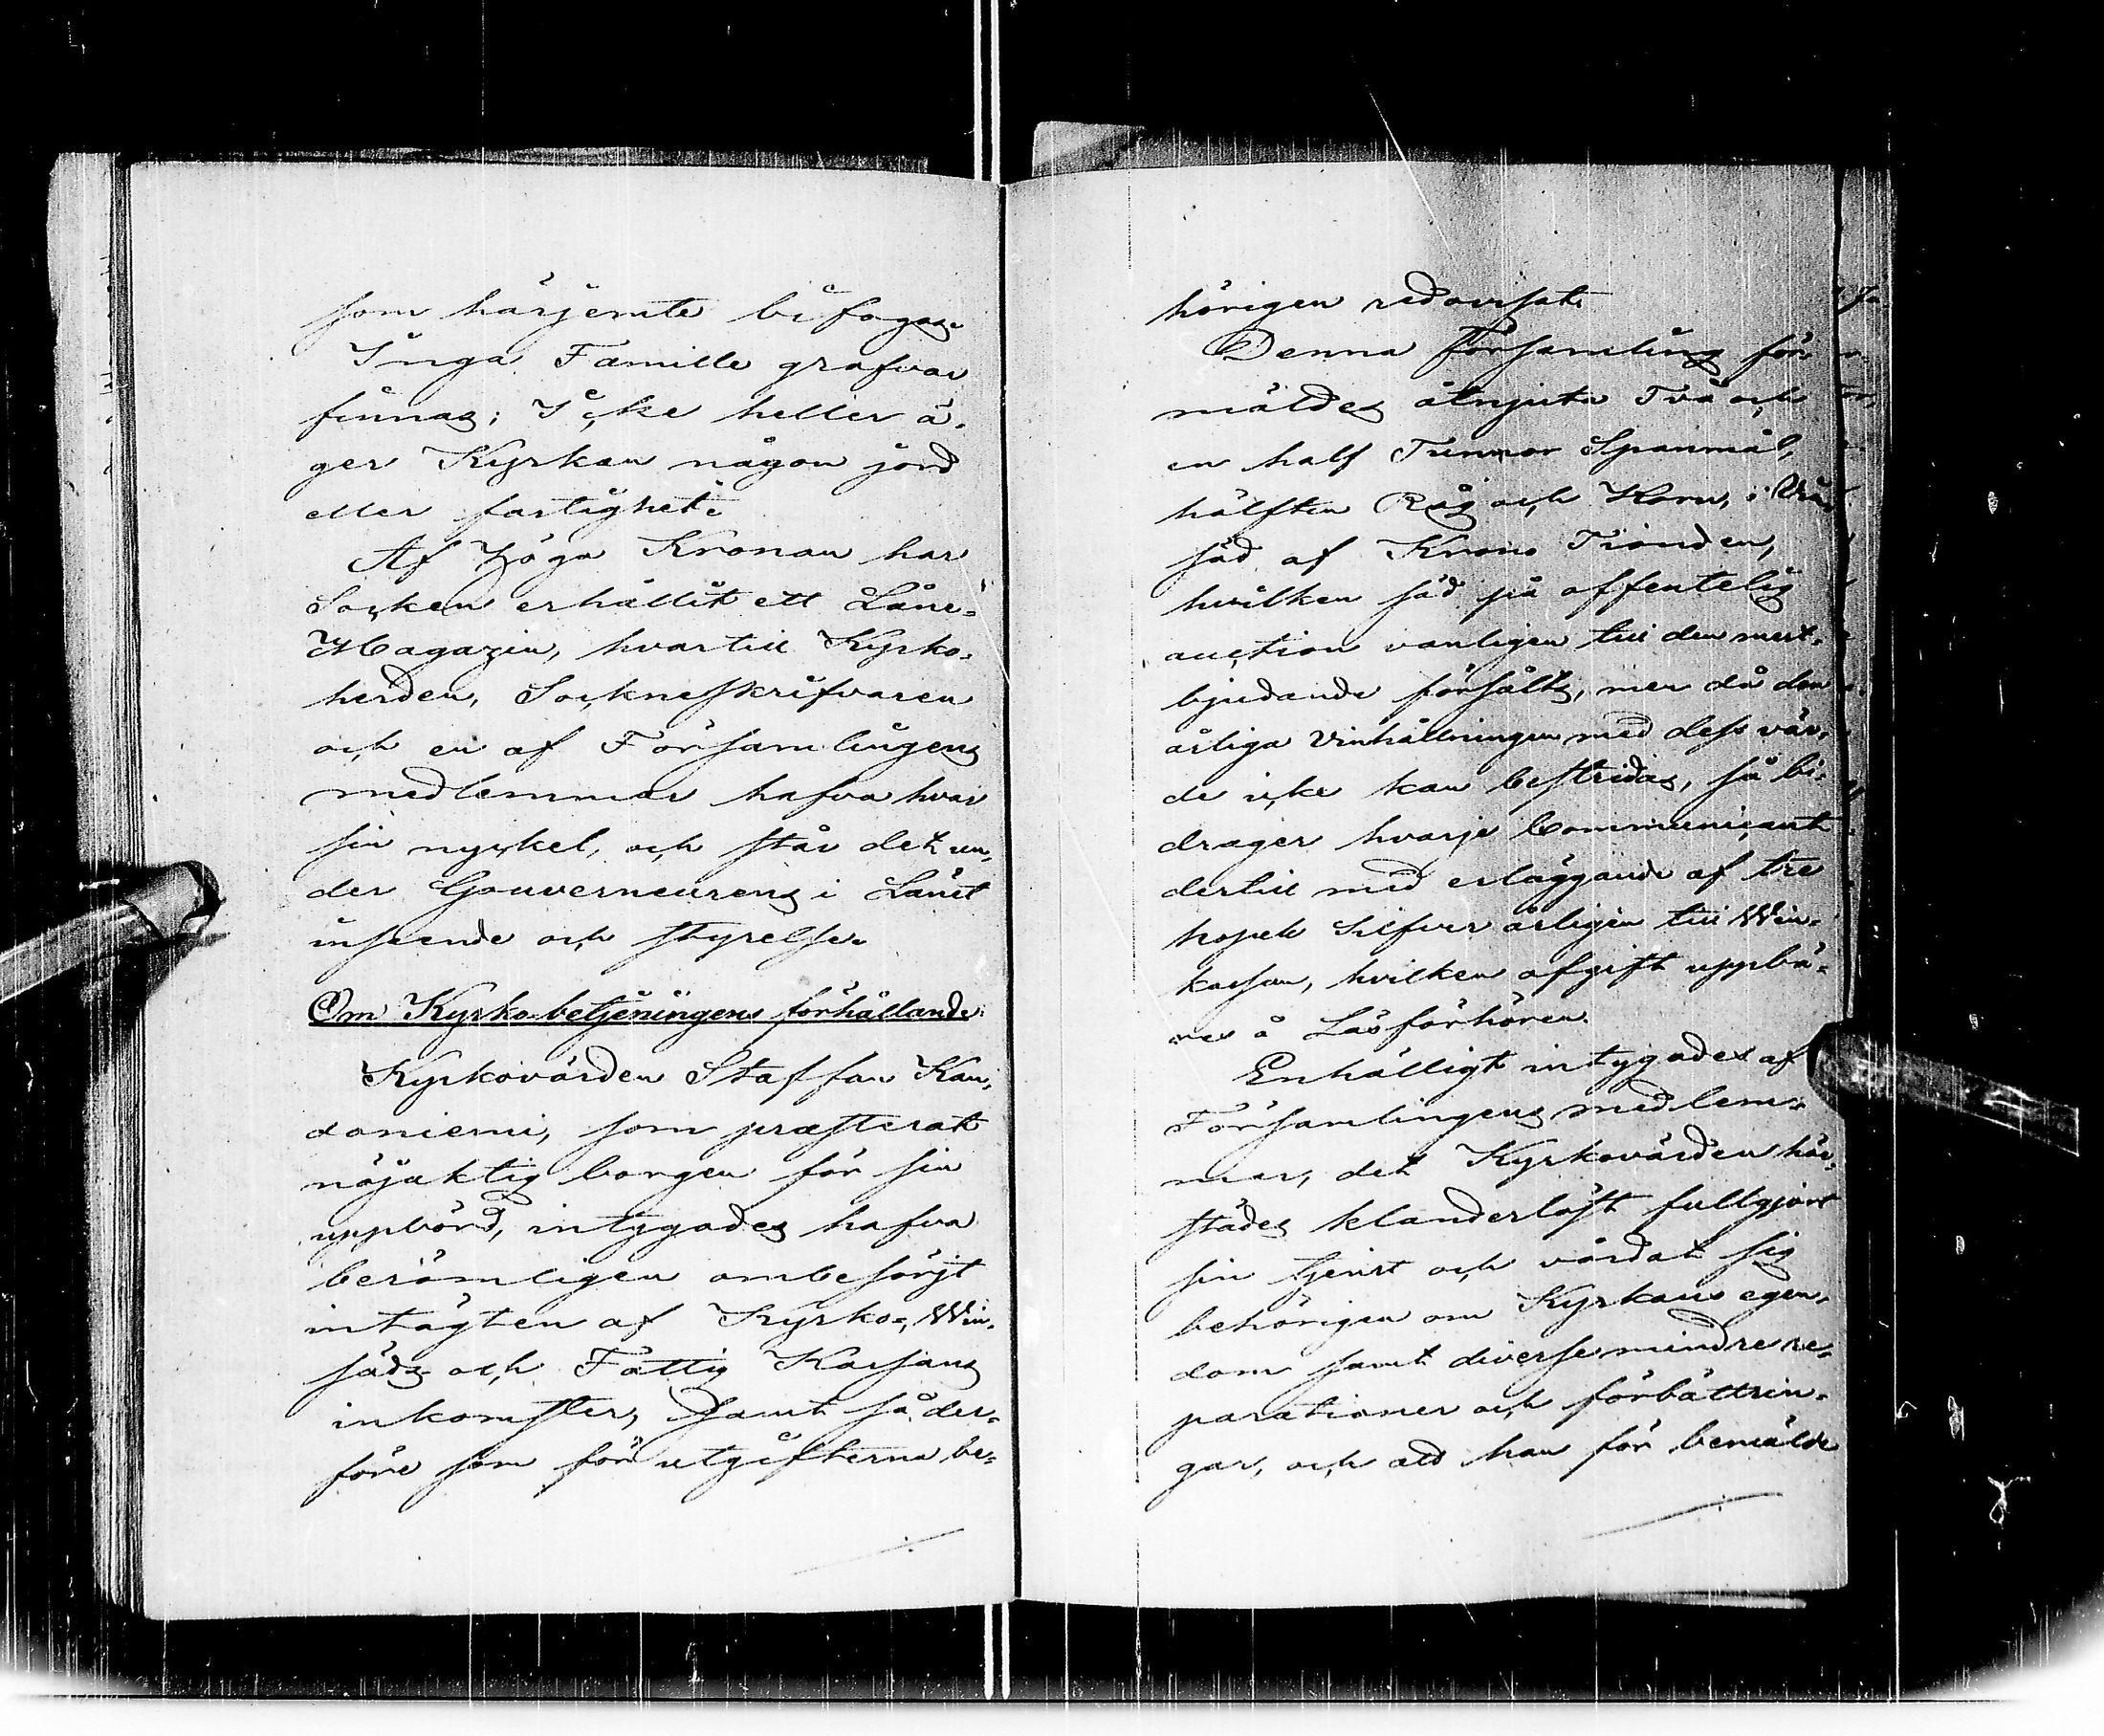 som härjemte bifogas.
Inga Famille grafvar
finnas; Icke heller ä-
ger Kyrkan någon jord
eller fastighet.
Af Höga Kronan har
Socken erhållit ett Låne-
Magazin, hvartill Kyrko-
herden, Sockneskrifvaren
och en af Församlingens
medlemmar hafva hvar
sin nyckel, och står det un-
der Gouverneurens i Länet
inseende och styrelse.
Om Kyrkobetjeningens förhållande.
Kyrkovärden Staffan Kau-
doniemi, som præsterat
nöjaktig borgen för sin
uppbörd, intygades hafva
berömligen ombesörjt
intägten af Kyrko-, Win-
säds och Fattig Kassans
inkomster, samt så der-
före som för utgifterna be-
hörigen redovisat.
Denna Församling för-
mäldes åtnjuta Två och
en half Tunnor Spanmål,
hälften Råg och Korn, i Vin-
säd af Krono Tionden,
hvilken säd på offentelig
auction vanligen till den mest-
bjudande försålts, men då den
årliga Vinhållningen med dess vär-
de icke kan bestridas, så bi-
drager hvarje Communicant
dertill med erläggande af tre
kopek Silfver årligen till Win-
kassan, hvilken afgift uppbä-
res å Läsförhören.
Enhälligt intygades af
Församlingens medlem-
mar, det Kyrkovärden här-
städes klanderlöst fullgjort
sin tjenst och vårdat sig
behörigen om Kyrkans egen-
dom samt diverse mindre re-
parationer och förbättrin-
gar, och att han för bemälde